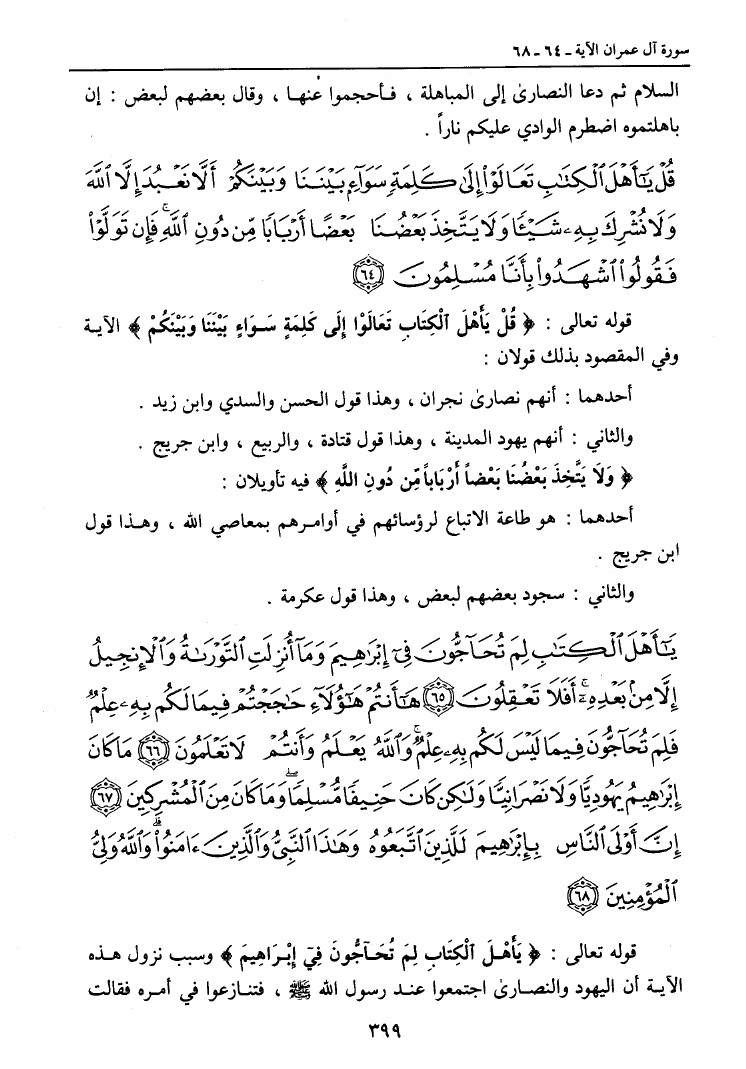 سورة آل عمران الآية ـ ٦٤ ـ ٦٨
السلام ثم دعا النصارىٰ إلى المباهلة ، فـأحجموا عنهـا ، وقال بعضهم لبعض : إن
باهلتموه اضطرم الوادي عليكم ناراً .
قُلْ يَٰٓأَهْلَ ٱلْكِتَٰبِ تَعَالَوْا۟ إِلَىٰ كَلِمَةٍ سَوَآءٍۭ بَيْنَنَا وَبَيْنَكُمْ أَلَّا نَعْبُدَ إِلَّا ٱللَّهَ
وَلَا نُشْرِكَ بِهِۦ شَيْـًٔا وَلَا يَتَّخِذَ بَعْضُنَا بَعْضًا أَرْبَابًا مِّن دُونِ ٱللَّهِ ۚ فَإِن تَوَلَّوْا۟
فَقُولُوا۟ ٱشْهَدُوا۟ بِأَنَّا مُسْلِمُونَ ﴿٦٤﴾
قوله تعالى : ﴿ قُلْ يَأَهْلَ ٱلْكِتَابِ تَعَالَوْا إِلَى كَلِمَةٍ سَـوَاءٍ بَيْنَنَا وَبَيْنَكُمْ ﴾ الآيـة
وفي المقصود بذلك قولان :
أحدهمـا : أنهم نصارىٰ نجران ، وهذا قول الحسن والسدي وابن زيد .
والثاني : أنهم يهود المدينة ، وهذا قول قتادة ، والربيع ، وابن جريج .
﴿ وَلَا يَتَّخِذَ بَعْضُنَا بَعْضاً أَرْبَاباً مِّن دُونِ اللَّهِ ﴾ فيه تأويلان :
أحدهمـا : هو طاعة الاتباع لرؤسائهم في أوامـرهم بمعاصي الله ، وهـذا قول
ابن جريج .
والثاني : سجود بعضهم لبعض ، وهذا قول عكرمة .
يَٰٓأَهْلَ ٱلْكِتَٰبِ لِمَ تُحَآجُّونَ فِىٓ إِبْرَٰهِيمَ وَمَآ أُنزِلَتِ ٱلتَّوْرَىٰةُ وَٱلْإِنجِيلُ
إِلَّا مِنۢ بَعْدِهِۦٓ ۚ أَفَلَا تَعْقِلُونَ ﴿٦٥﴾ هَٰٓأَنتُمْ هَٰٓؤُلَآءِ حَٰجَجْتُمْ فِيمَا لَكُم بِهِۦ عِلْمٌ
فَلِمَ تُحَآجُّونَ فِيمَا لَيْسَ لَكُم بِهِۦ عِلْمٌ ۚ وَٱللَّهُ يَعْلَمُ وَأَنتُمْ لَا تَعْلَمُونَ ﴿٦٦﴾ مَا كَانَ
إِبْرَٰهِيمُ يَهُودِيًّا وَلَا نَصْرَانِيًّا وَلَٰكِن كَانَ حَنِيفًا مُّسْلِمًا وَمَا كَانَ مِنَ ٱلْمُشْرِكِينَ ﴿٦٧﴾
إِنَّ أَوْلَى ٱلنَّاسِ بِإِبْرَٰهِيمَ لَلَّذِينَ ٱتَّبَعُوهُ وَهَٰذَا ٱلنَّبِىُّ وَٱلَّذِينَ ءَامَنُوا۟ ۗ وَٱللَّهُ وَلِىُّ
ٱلْمُؤْمِنِينَ ﴿٦٨﴾
قوله تعالى : ﴿ يَأَهْـلَ ٱلْكِتَابِ لِمَ تُحَـآجُّونَ فِيٓ إِبْـرَاهِيمَ ﴾ وسبب نزول هـذه
الآيـة أن اليهود والنصـارىٰ اجتمعوا عنـد رسول الله ﷺ ، فتنـازعوا في أمـره فقالت
٣٩٩